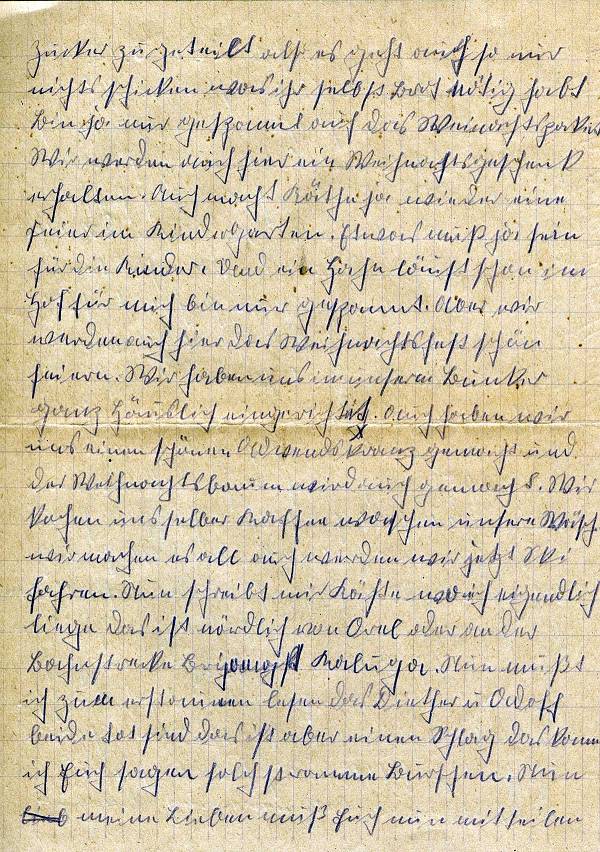 Zucker zu geteilt also es geht auch so nur
nichts schicken was ihr selbst Brot nötig habt
Bin ja nur gespannt auf das Weinachtspaket
Wir werden auch hier ein Weihnachtsgeschenk
erhalten. Auch macht Käthe ja wieder eine
feier im Kindergarten. Etwas muß ja sein
für die Kinder. Und ein Hahn läuft schon im
Hof für mich bin nur gespannt. Aber wir
werden auch hier das Weihnachtsfest schön
feiern. Wir haben uns in unserm Bunker
ganz Häuslich eingerichtet. Auch haben wir
uns einen schönen Adwendskranz gemacht und
der Weihnachtsbaum wird auch gemacht. Wir
kochen uns selber Kaffee waschen unsere Wäsch
wir machen es all auch werden wir jetzt Ski
fahren. Nun schreibt mir Käthe wo ich eigendlich
liege das ist nördlich von Orel oder an der
Bahnstrecke Brijansk Kaluga. Nun mußt
ich zum erstaunen lesen das Diether u Adolf
beide tot sind das ist aber einen Schlag das kann
ich Euch sagen solch stramme Burschen. Nun
meine Lieben muß Euch nun mitteilen